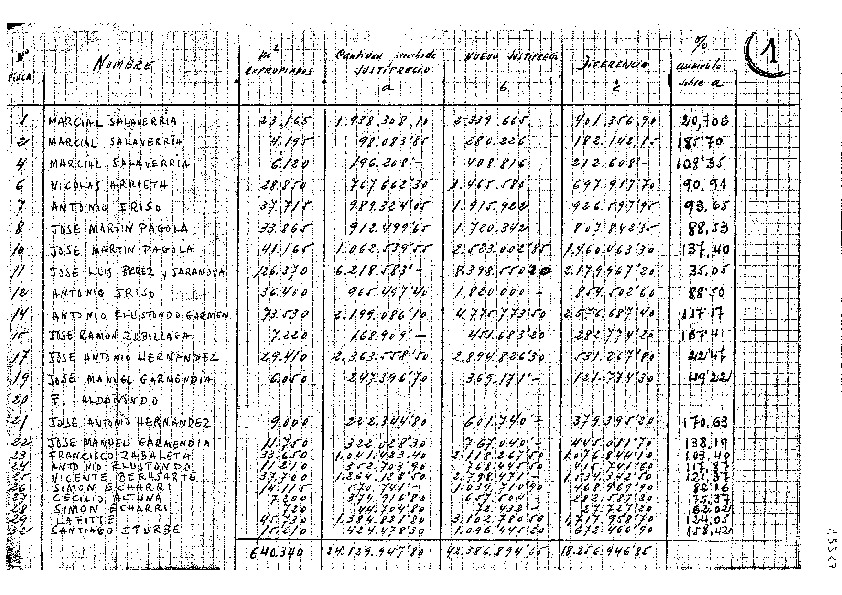 Nº FINCA NOMBRE M² EXPROPIADOS Cantidad recibida JUSTIPRECIO a NUEVO JUSTIPRECIO b DIFERENCIA c % aumento sobre a 1
1 MARCIAL SALAVERRIA 23,165 1.938.308,10 2.339.665 401.356,90 20,706
2 MARCIAL SALAVERRIA 4.195 98.083'85 280.226 182.142'15 185'70
4 MARCIAL SALAVERRIA 6.120 196.208'- 408.816 212.608'- 108'35
6 NICOLAS ARRIETA 28.850 767.662'30 1.465.580 697.917'70 90.91
7 ANTONIO IRISO 37.715 989.324'05 1.915.922 926.597'95 93,65
8 JOSE MARTIN PAGOLA 33.865 912.499'65 1.720.342 807.842'35 88,53
10 JOSE MARTIN PAGOLA 41.165 1.062.539'55 2.523.002'85 1.460.463'30 137,40
11 JOSE LUIS PEREZ y SARANOSA 126.370 6.218.583'- 8.398.550'20 2.179.967'20 35,05
12 ANTONIO IRISO 36.400 965.497'40 1.820.000 854.502'60 88'50
14 ANTONIO ELUSTONDO GARMEN. 73.530 2.199.086'10 4.775.773'50 2.576.687'40 117'17
15 JOSE RAMON ZUBILLAGA 7.220 168.909'- 451.683'20 282.774'20 167'41
17 JOSE ANTONIO HERNANDEZ 29.410 2.363.558'50 2.894.826'30 531.267'80 22'47
19 JOSE MANUEL GARMENDIA 6.050 247.396'70 369.171'- 121.774'30 49'22
20 F. ALDONONDO
21 JOSE ANTONIO HERNANDEZ 9.000 222.344'80 601.740'- 379.395'20 170.63
22 JOSE MANUEL GARMENDIA 11.750 322.028'30 767.040'- 445.011'70 138,19
23 FRANCISCO ZABALETA 33.650 1.041.423'40 2.118.267'50 1.076.844'10 103.40
24 ANTONIO ELUSTONDO 11.210 352.703'90 768.445'50 415.741'60 117.87
25 VICENTE BERUSARTE 37.700 1.264.128'50
26 SIMON ECHARRI
27 CECILIO ALTUNA 7.200 374.916'80 657.504'- 282.587'20 75.37
28 SIMON ECHARRI 720 44.704'80 72.432'- 27.727'20 62.02
29 LAFITTE 45.730 1.384.821'80 3.102.780'50 1.717.958'70 124.05
32 SANTIAGO ITURBE 15.610 424.478'30 1.096.945'60 158,42
640.340 24.129.947'80 42.386.894'65 18.256.946'85